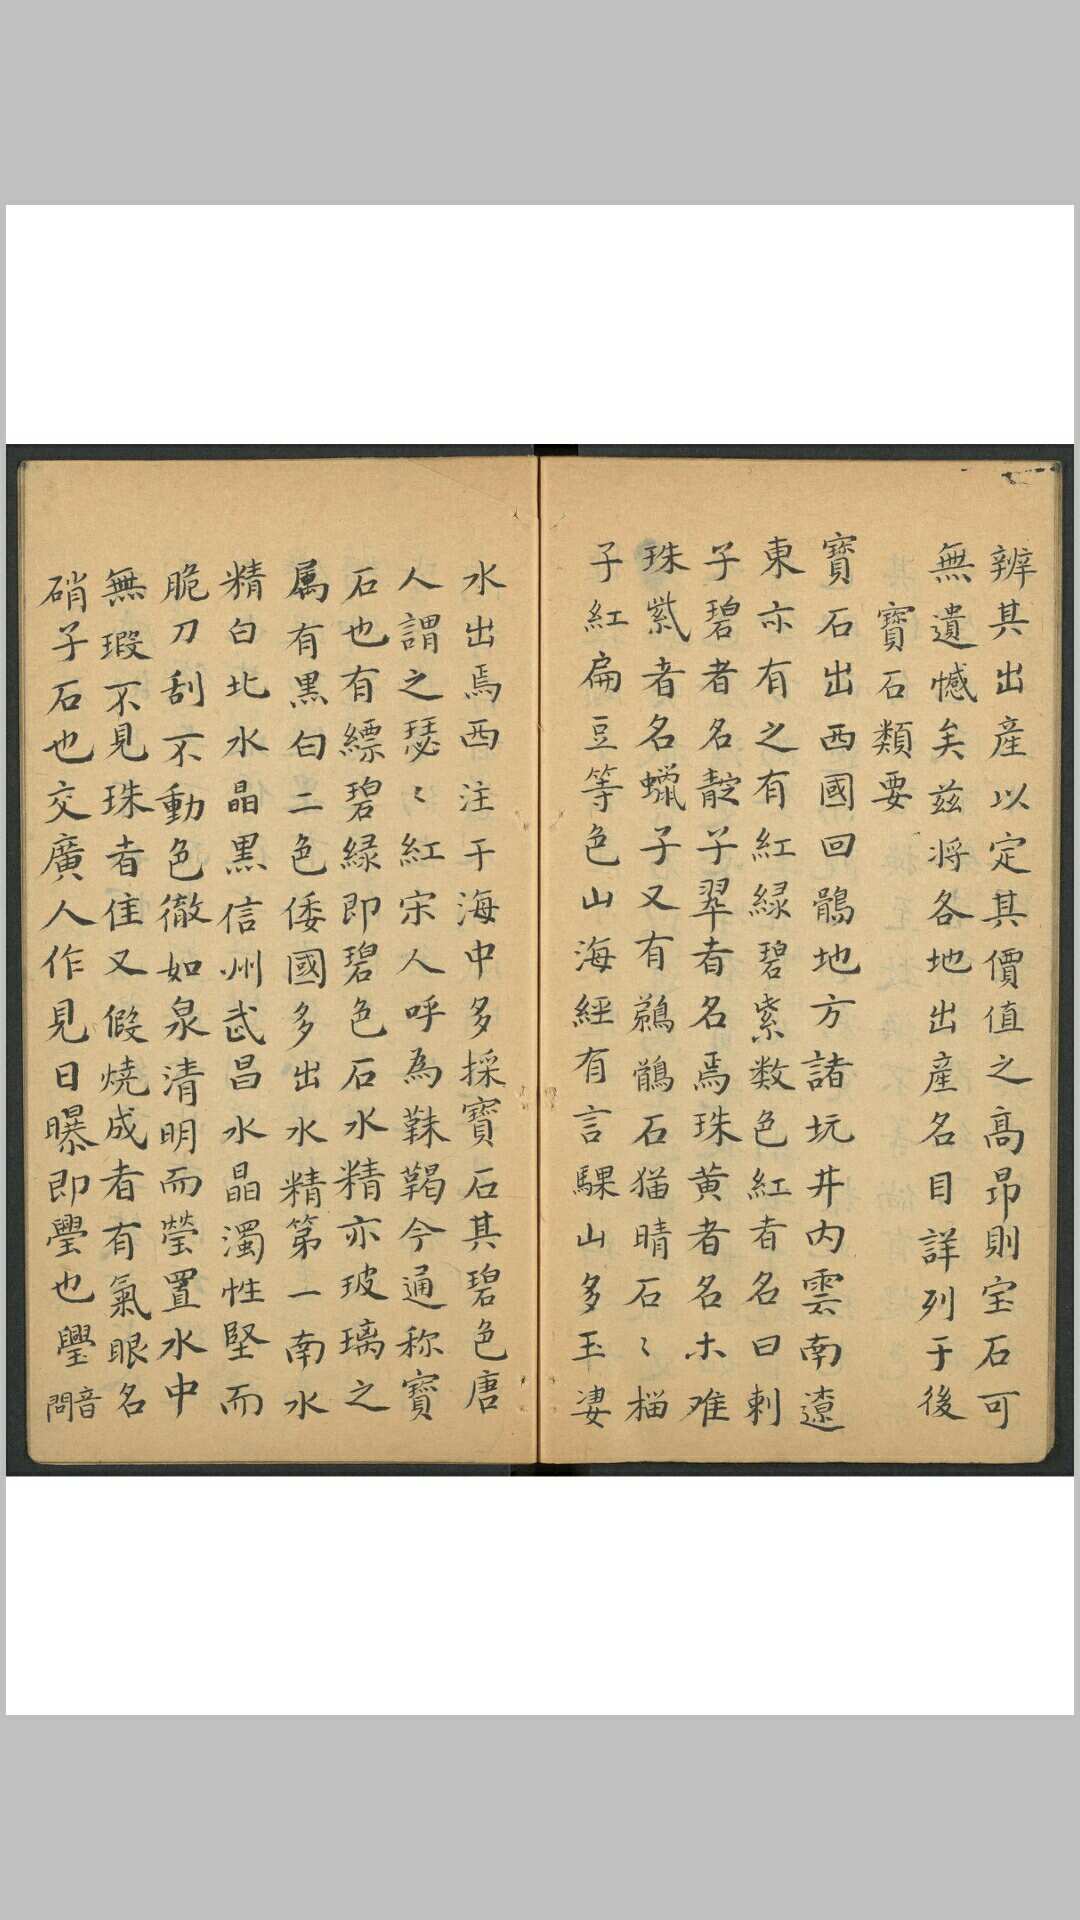 辨其出產以定其價值之高昂則宝石可
無遺憾矣兹将各地出產名目詳列于後
寶石類要
寶石出西國回鶻地方諸坑井内雲南遼
東亦有之有紅緑碧紫数色紅者名曰刺
子碧者名靛子翠者名馬珠黄者名木难
珠紫者名蠟子又有鷀鶻石猫晴石〻榴
子紅扁豆等色山海經有言騍山多玉凄
水出焉西注于海中多採寶石其碧色唐
人謂之瑟〻紅宋人呼為靺鞨今通称寶
石也有縹碧緑即碧色石水精亦玻璃之
属有黒白二色倭國多出水精第一南水
精白北水晶黒信州武昌水晶濁性堅而
脆刀刮不動色徹如泉清明而瑩置水中
無瑕不見珠者佳又假燒成者有氣眼名
硝子石也交廣人作見日曝即璺也璺音問